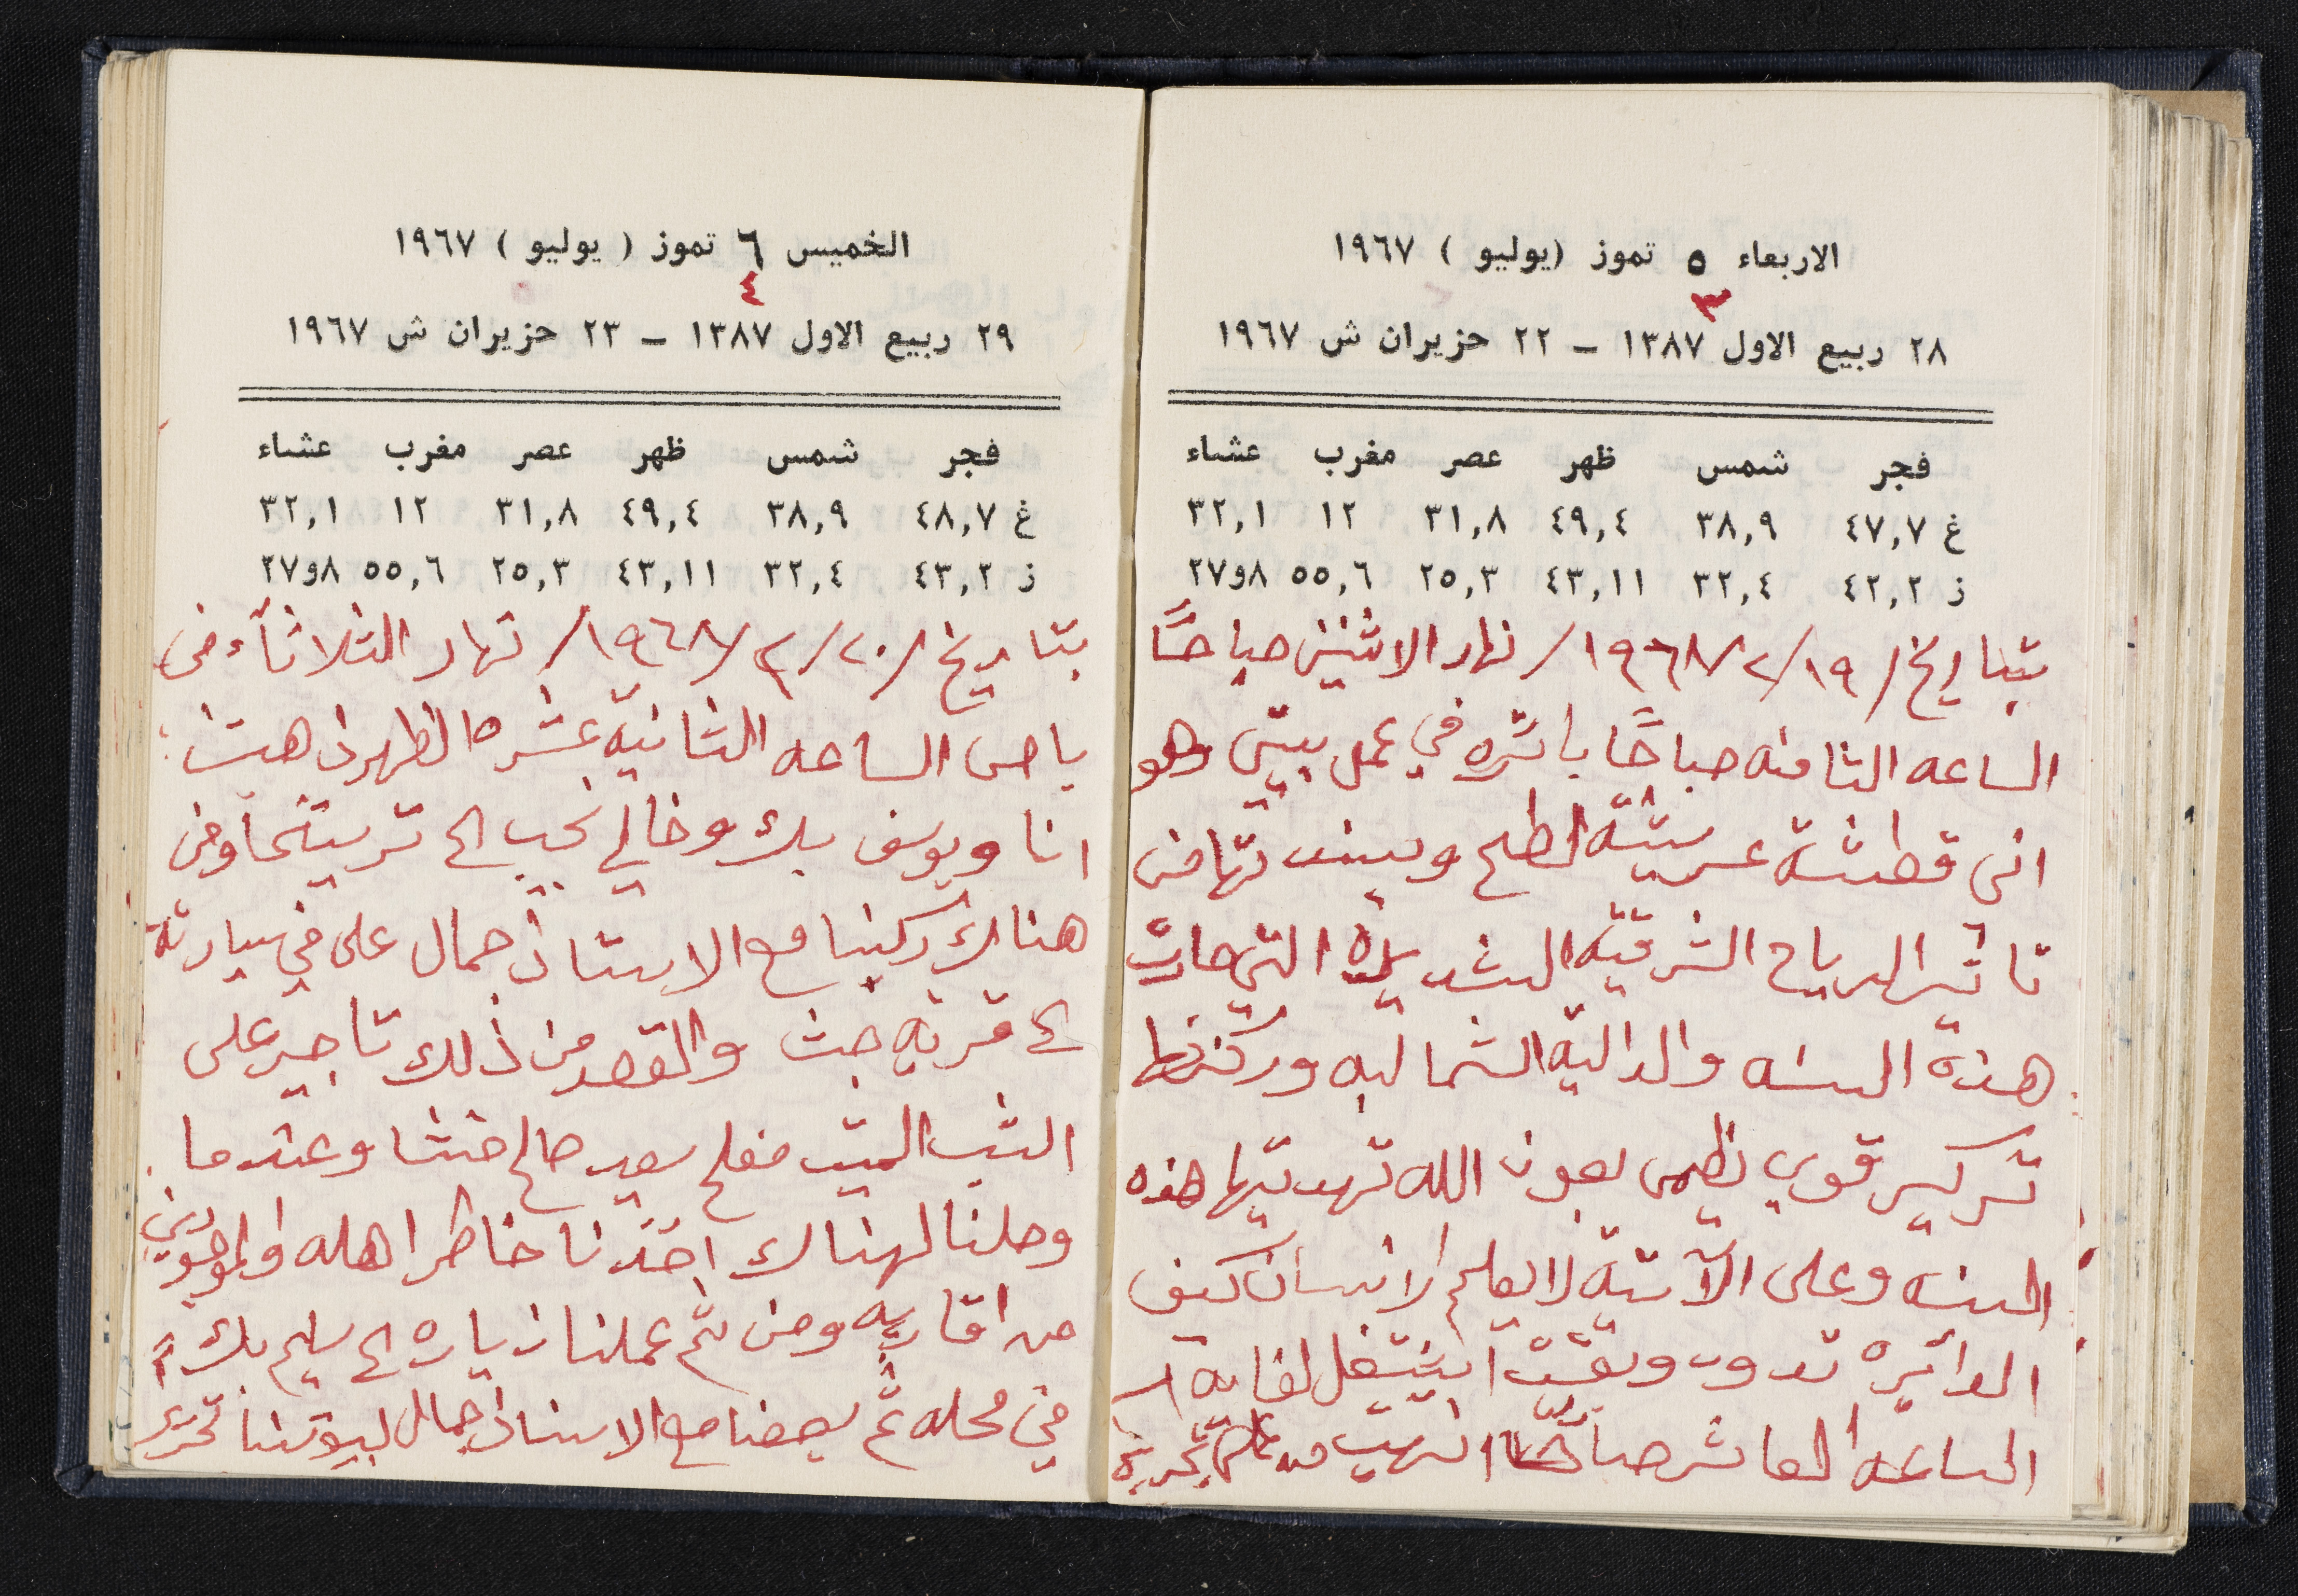 الاربعاء ٥ تموز (يوليو) ١٩٦٧
٣
٢٨ ربيع الاول ١٣٨٧ - ٢٢ حزيران ش ١٩٦٧
فجر شمس ظهر عصر مغرب عشاء
غ ٤٧,٧ ٣٨,٩ ٤٩,٤ ٣١,٨ ١٢ ٣٢,١
ز ٤٢,٢ ٣٢,٤ ٤٣,١١ ٢٥,٣ ٥٥,٦ ٨و٢٧
بتاريخ /١٩/٢/١٩٦٨/ نهار الاثنين صباحًا
الساعه الثامنه صباحًا باشره في عمل بيتي وهو
اني قطشة عريشة لطلح وسندتها من
تأثير الرياح الشرقية الشديدة التي صارت
هذه السنه والدالية الشماليه وركزتها
تركيز قوي بعون الله تهديتها هذه
السنه وعلى الآتية لا يعلم الانسان كيف
الدائيره تدور وبقيت اشتغل لغاية
الساعه العاشر صباحًا انتهيت من تحريره
الخميس ٦ تموز ( يوليو ) ١٩٦٧
٤
٢٩ ربيع الاول ١٣٨٧ - ٢٣ حزيران ش ١٩٦٧
فجر شمس ظهر عصر مغرب عشاء
غ ٤٨,٧ ٣٨,٩ ٤٩,٤ ٣١,٨ ١٢ ٣٢,١
ز ٤٣,٢ ٣٢,٤ ٤٣,١١ ٢٥,٣ ٥٥,٦ ٨و٢٧
بتاريخ /٢٠/٢/١٩٦٨/ نهار الثلاثآء في
باص الساعه الثانية عشره الظهر ذهبت
انا ويوسف بك وخالي نجيب الى ترشيحا ومن
هناك ركبنا مع الاستاذ جمال علي في سيارتة
الى قرية جث والقصد من ذلك تاجير على
الشب الميت مفلح سعيد صالح خنشا وعندما
وصلنا لهناك اخذنا خاطر اهله والموجودين
من اقاربه ومن ثم عملنا زياره الى سليم بك
في محله ثم بعضنا مع الاستاذ جمال لبيوتنا تحريرًا